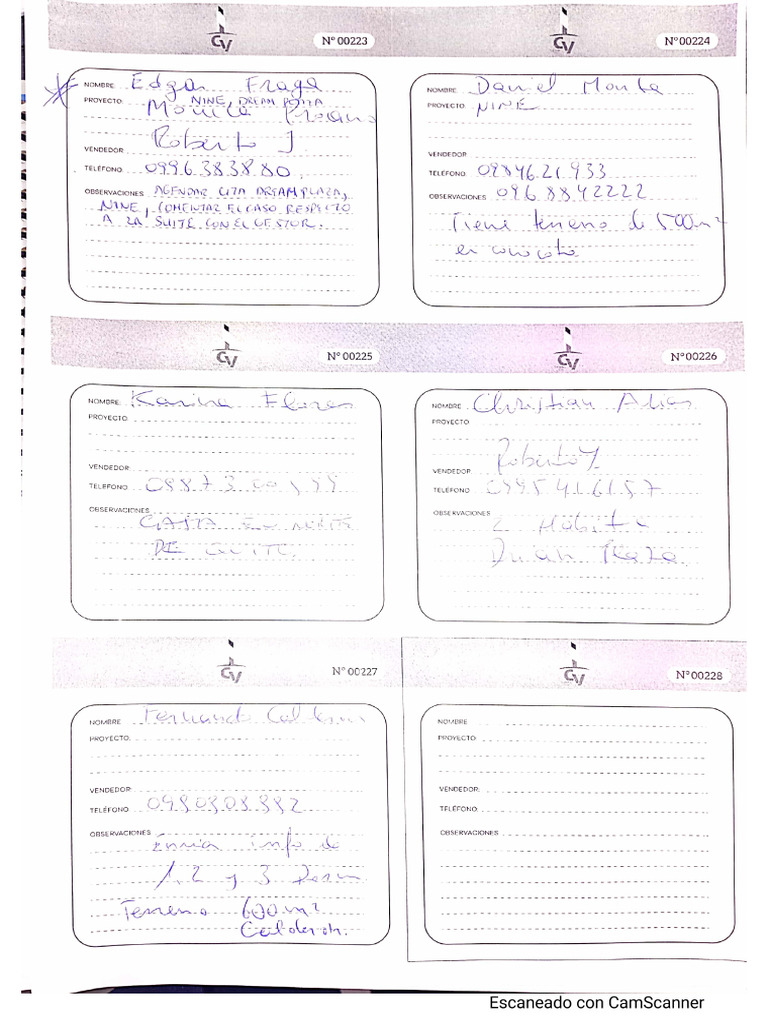 GV
N° 00223
NOMBRE Edgar Fraga
PROYECTO NINE, DREAM PLAZA
Monica
VENDEDOR Roberto J
TELÉFONO 0996383880
OBSERVACIONES AGENDAR CITA DREAM PLAZA,
NINE, COMENTAR EL CASO RESPECTO
A LA SUITE CON EL GESTOR.
GV
N° 00224
NOMBRE Daniel
PROYECTO NINE
VENDEDOR
TELÉFONO 0984621933
OBSERVACIONES 0968842222
Tiene terreno de 500m²
en conocoto
GV
N° 00225
NOMBRE Karina Flores
PROYECTO
VENDEDOR
TELÉFONO
OBSERVACIONES
CASA EN NORTE
DE QUITO.
GV
N° 00226
NOMBRE Christian Arias
PROYECTO
VENDEDOR Roberto
TELÉFONO 0995416157
OBSERVACIONES
2
GV
N° 00227
NOMBRE Fernando
PROYECTO
VENDEDOR
TELÉFONO
OBSERVACIONES
Envia info de
1, 2 y 3
Terreno 600m²
Calderon.
GV
N° 00228
NOMBRE
PROYECTO
VENDEDOR
TELÉFONO
OBSERVACIONES
Escaneado con CamScanner